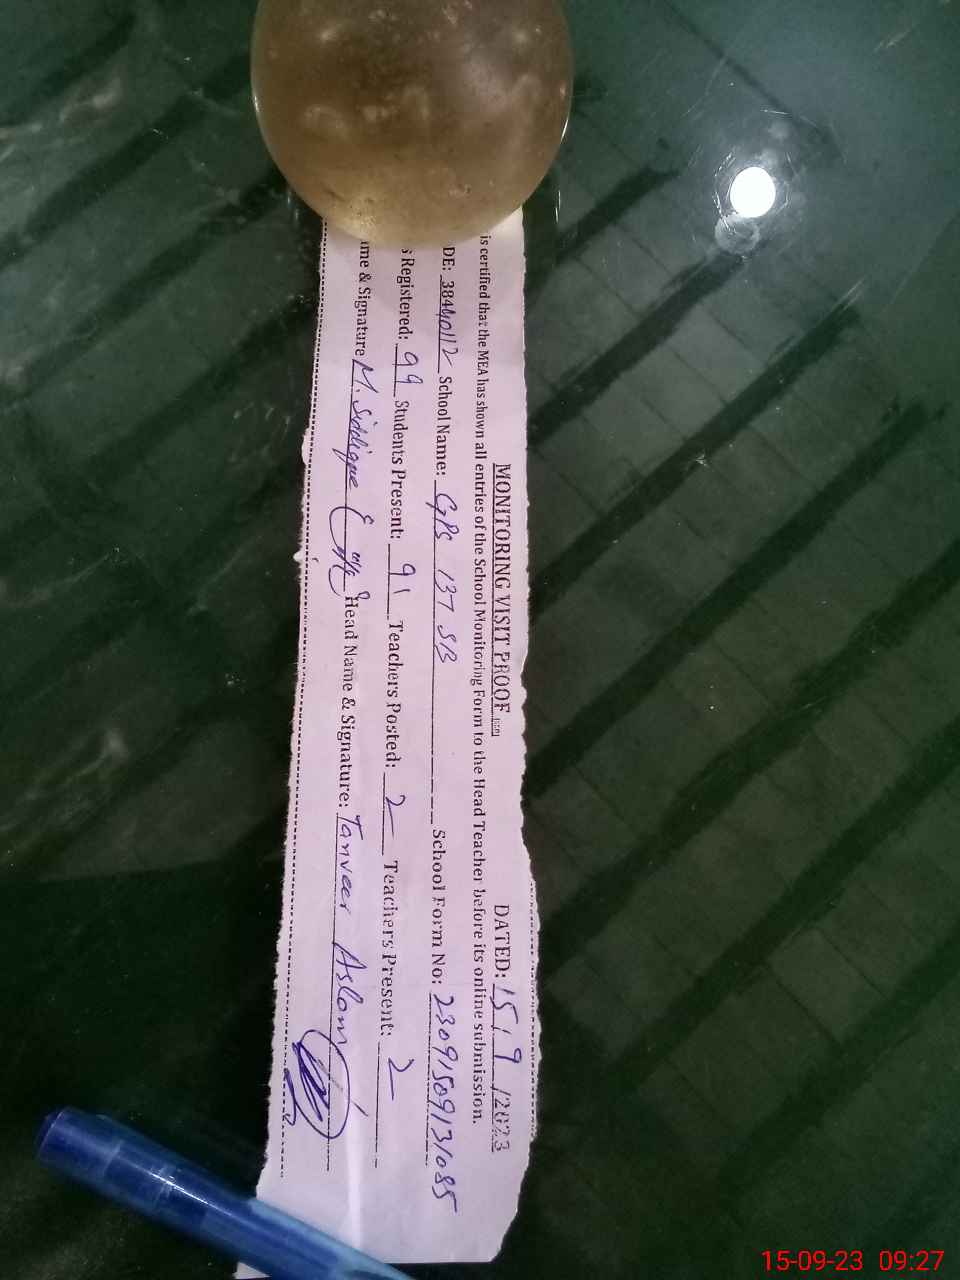 MONITORING VISIT PROOF DATED: 15/9/2023
is certified that the MEA has shown all entries of the School Monitoring Form to the Head Teacher before its online submission.
DE: 38440112 School Name: GPS 137 SB School Form No: 23091509131085
s Registered: 99 Students Present: 91 Teachers Posted: 2 Teachers Present: 2
ame & Signature M. Siddique Head Name & Signature: Tanveer Aslam
15-09-23 09:27